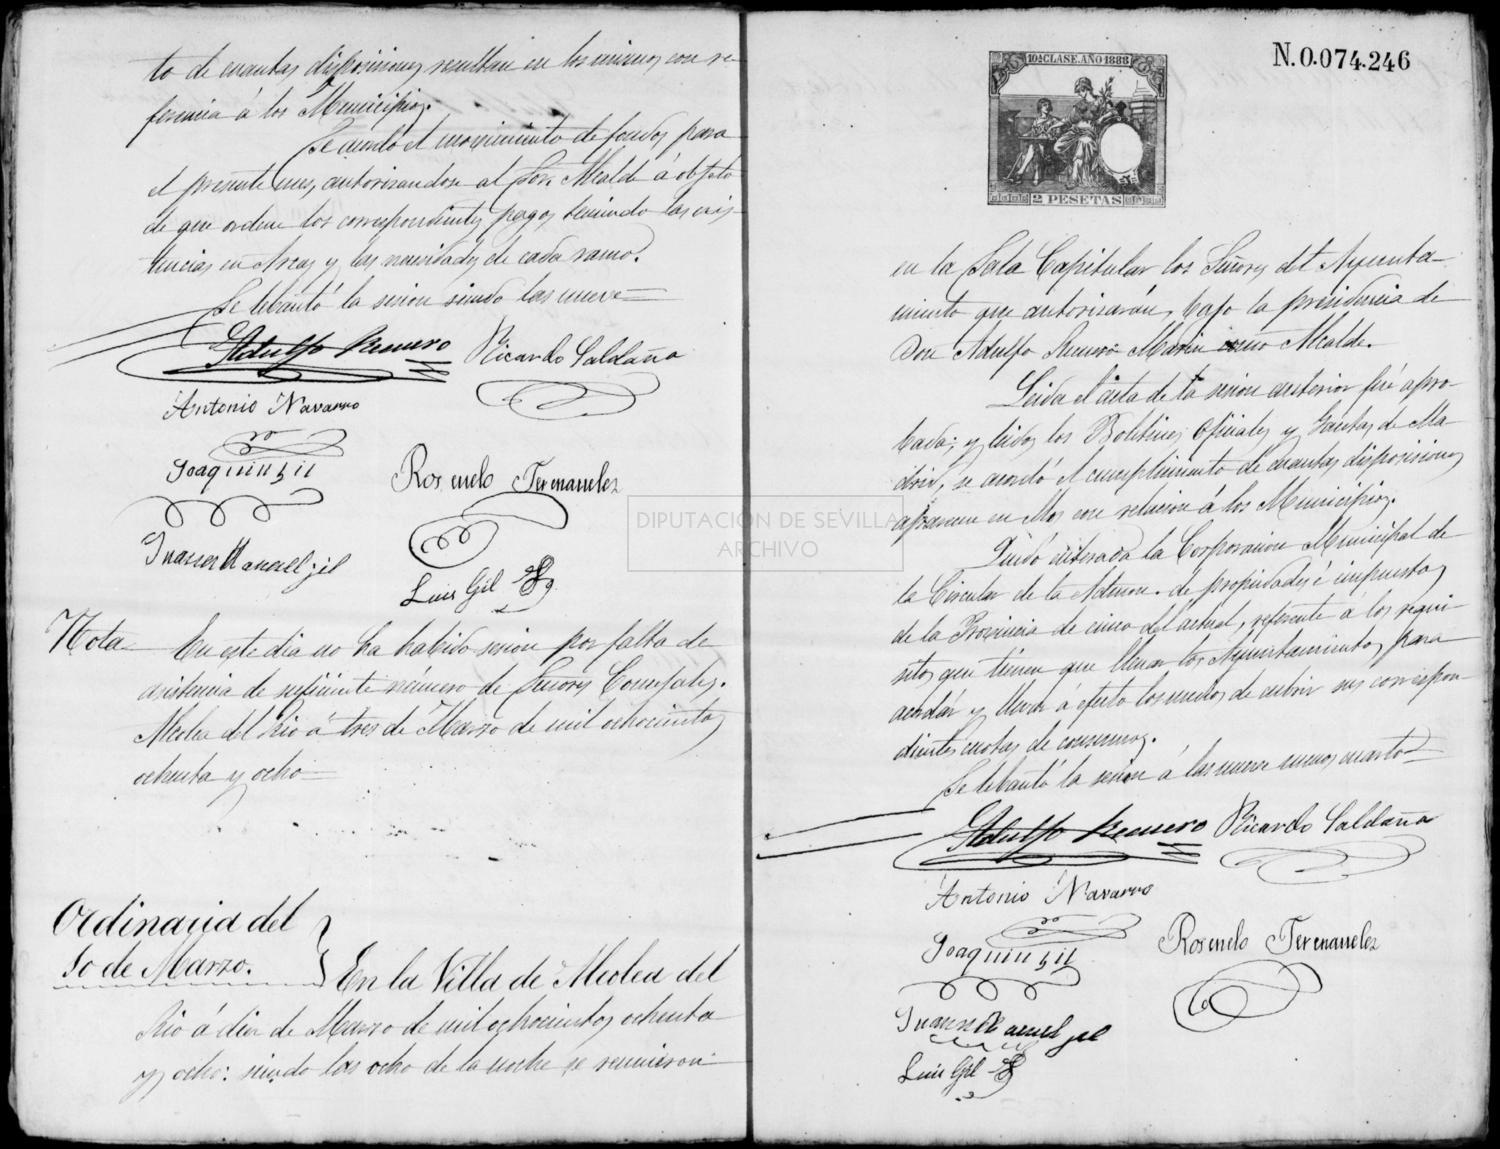 to de cuantas disposiciones resultan en los mismos con re-
ferencia á los Municipios.
Se acordó el movimiento de fondos para
el presente mes, autorisandose al Sor. Alcalde á objeto
de que ordene los correspondientes pagos teniendo las exis-
tencias en Arcas y las necesidades de cada ramo.
Se lebantó la sesion siendo las nueve=
Adolfo Romero Ricardo Saldaña
Antonio Navarro
Joaquin Gil
Rosendo Fernandez
Juan Manuel gil
Luis Gil
Nota= En este dia no ha habido sesion por falta de
asistencia de suficiente número de Señores Concejales.
Alcolea del Rio á tres de Marzo de mil ochocientos
ochenta y ocho=
Ordinaria del
10 de Marzo.
En la Villa de Alcolea del
Rio á diez de Marzo de mil ochocientos ochenta
y ocho: siendo las ocho de la noche se reunieron
10ª CLASE. AÑO 1888
2 PESETAS
N.0.074.246
en la Sala Capitular los Señores del Ayunta-
miento que autorisarán, bajo la presidencia de
Don Adolfo Romero Marin como Alcalde.
Leida el acta de la sesion anterior fué apro-
bada; y leidos los Boletines Oficiales y Gacetas de Ma-
drid, se acordó el cumplimiento de cuantas disposiciones
aparecen en ellos con relacion á los Municipios.
Quedó enterada la Corporacion Municipal de
la Circular de la Admon. de propiedades é impuestos
de la Provincia de cinco del actual, referente á los requi-
sitos que tienen que llenar los Ayuntamientos para
acordar y llevar á efecto los medios de cubrir sus correspon-
dientes cuotas de consumos.
Se lebantó la sesion á las nueve menos cuarto=
Adolfo Romero Ricardo Saldaña
Antonio Navarro
Joaquin Gil
Rosendo Fernandez
Juan Manuel gil
Luis Gil
DIPUTACIÓN DE SEVILLA
ARCHIVO